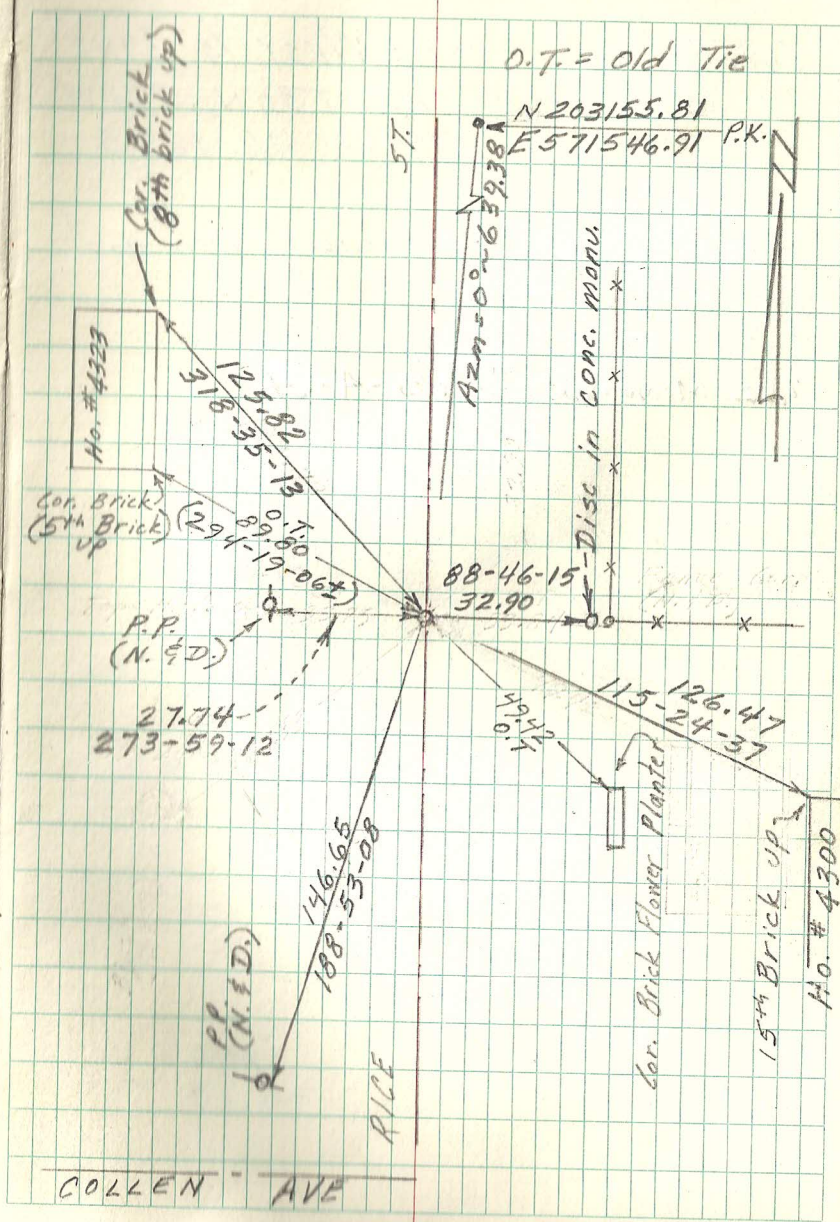 O.T. = Old Tie
N 203155.81
E 571546.91 P.K.
ST.
Azm = 0° ~ 639.38
Cor. Brick
(8th brick up)
Ho. # 4323
125.82
318-35-13
Cor. Brick
(5th Brick)
up
O.T.
89.80
(294-19-06±)
Disc in conc. monu.
88-46-15
32.90
P.P.
(N. & D.)
27.74
273-59-12
126.47
115-24-37
49.42
O.T.
Cor. Brick Flower Planter
15th Brick up
Ho. # 4300
146.65
188-53-08
P.P.
(N. & D.)
RICE
COLLEN AVE